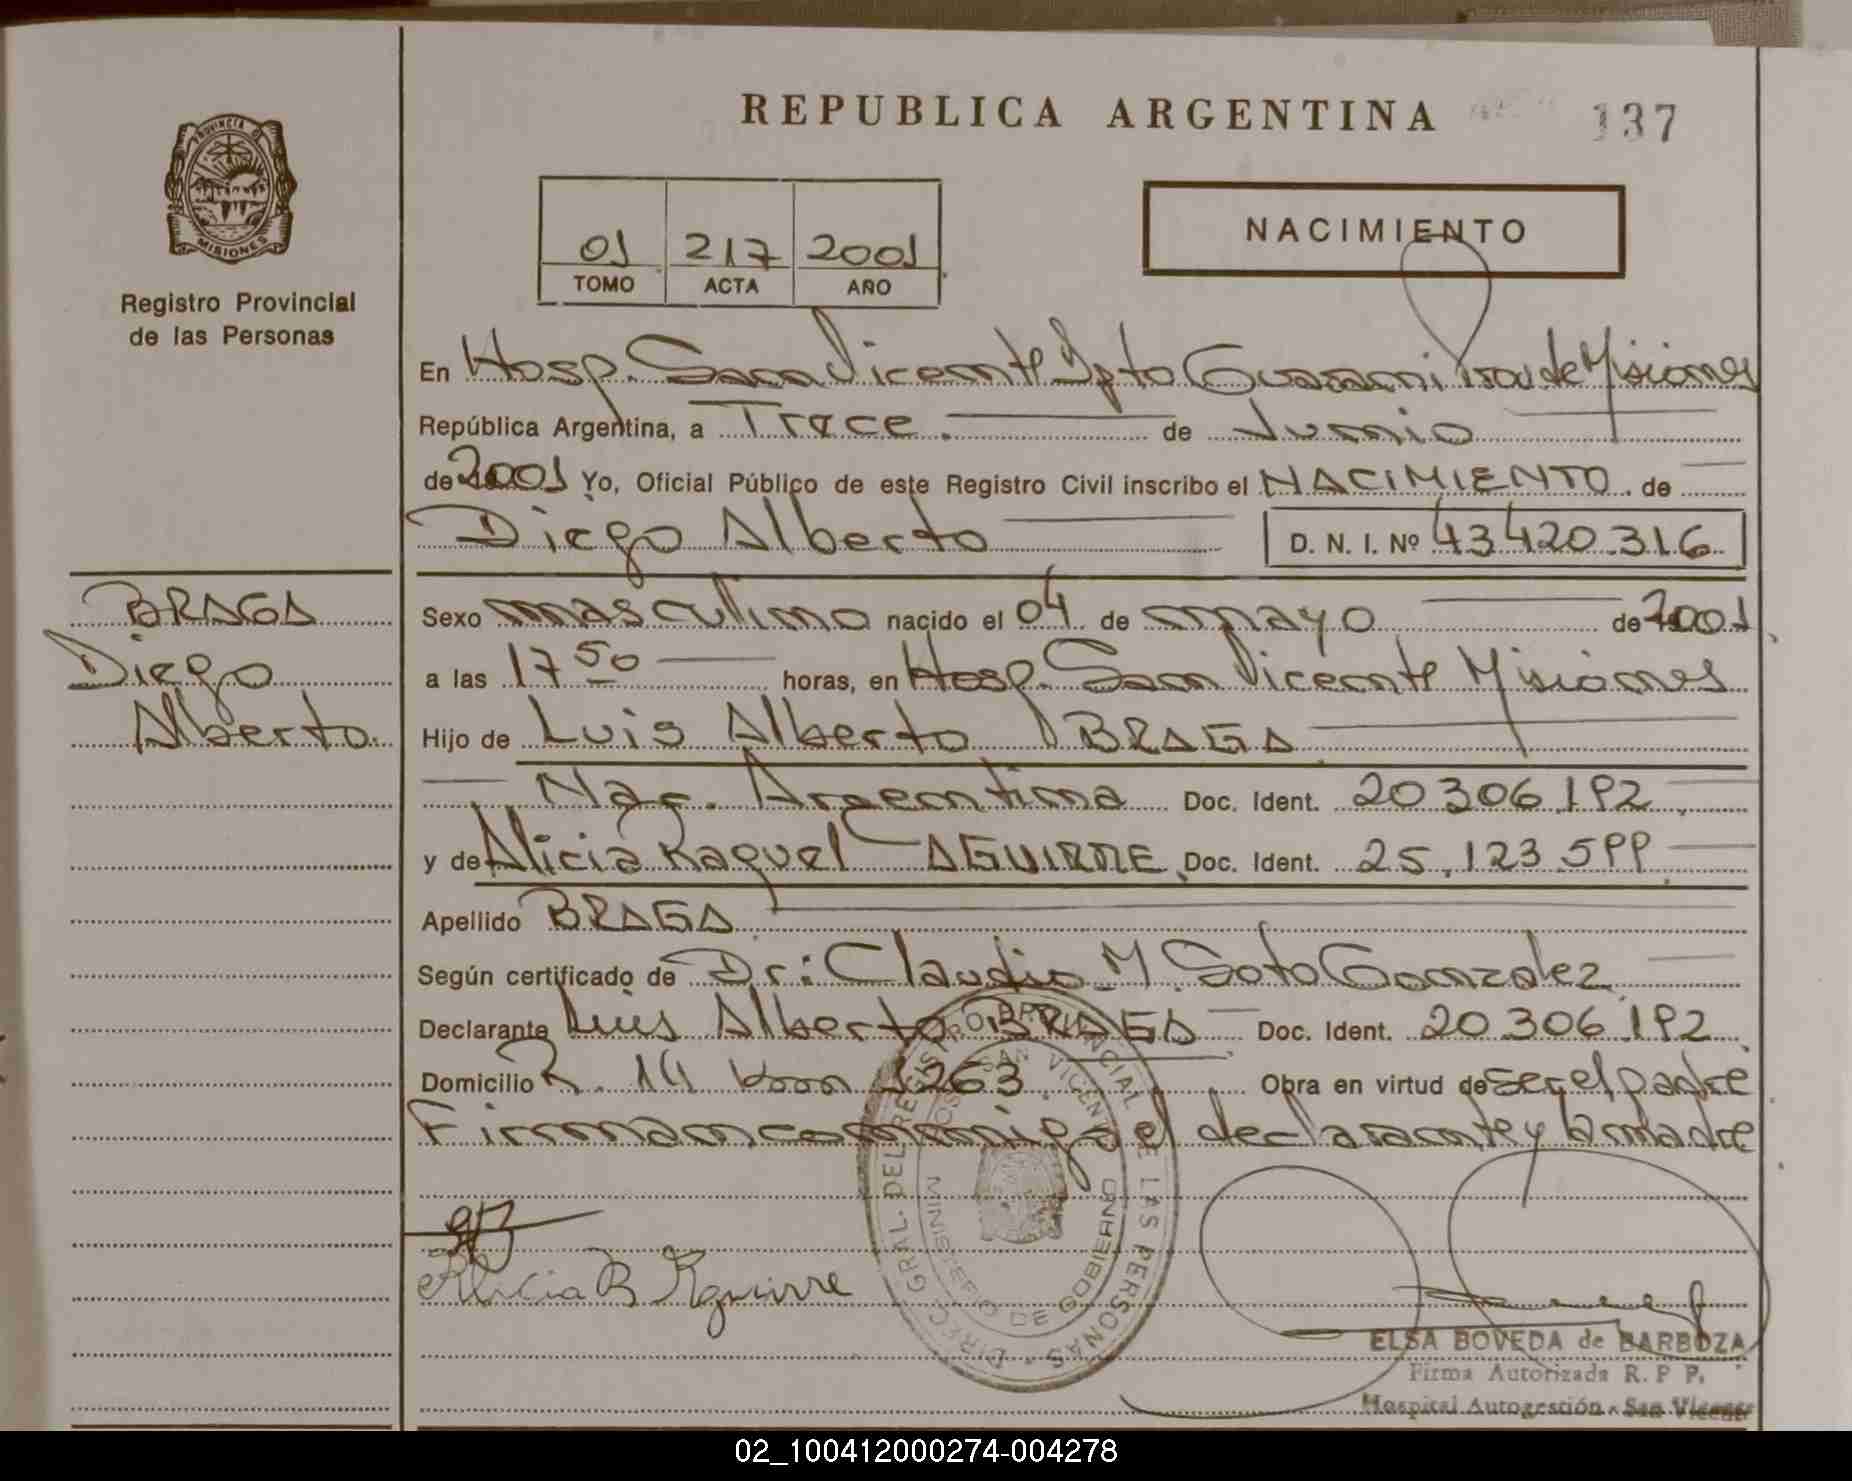 REPUBLICA ARGENTINA
137
PROVINCIA D
MISIONES
Registro Provincial
de las Personas
01 217 2001
TOMO ACTA AÑO
NACIMIENTO
En Hosp. San Vicente Dpto Guarani Prov de Misiones
República Argentina, a Trece de Junio
de 2001 Yo, Oficial Público de este Registro Civil inscribo el NACIMIENTO de
Diego Alberto D. N. I. Nº 43420.316
BRAGA
Diego
Alberto
Sexo masculino nacido el 04 de mayo de 2001
a las 17 50 horas, en Hosp. San Vicente Misiones
Hijo de Luis Alberto BRAGA
Nac. Argentina Doc. Ident. 20306.192
y de Alicia Raquel AGUIRRE Doc. Ident. 25.123.599
Apellido BRAGA
Según certificado de Dr: Claudio M. Soto Gonzalez
Declarante Luis Alberto BRAGA Doc. Ident. 20306.192
Domicilio R. 14 km 1263 Obra en virtud de ser el padre
Firman conmigo el declarante y la madre
DIREC. GRAL. DEL REGISTRO PROVINCIAL DE LAS PERSONAS
HOSP. SAN VICENTE
MINISTERIO DE GOBIERNO
Alicia R Aguirre
ELSA BOVEDA de BARBOZA
Firma Autorizada R. P P.
Hospital Autogestión - San Vicente
02_100412000274-004278